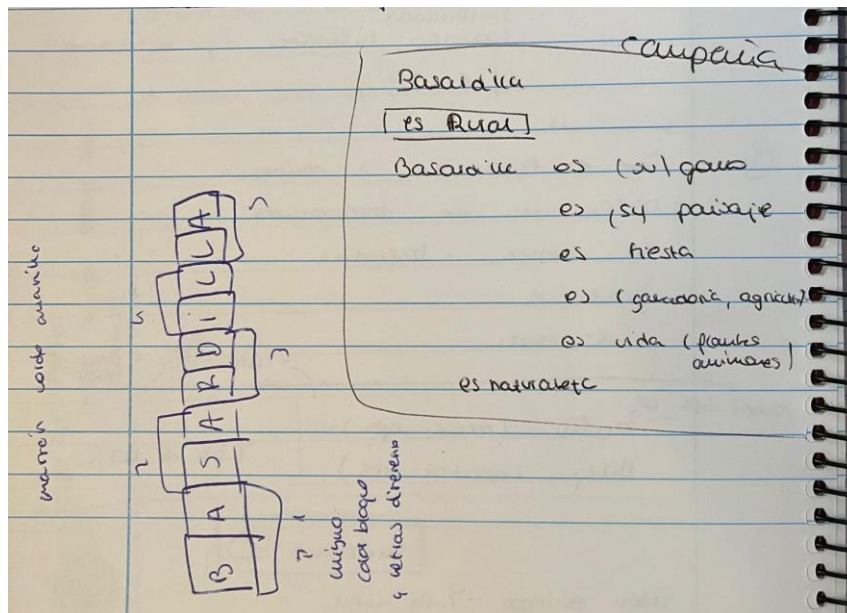 Campaña
Basardilla
es Rural
Basardilla es (su) gano
es su paisaje
es fiesta
es (ganadería, agricult)
es vida (plantas
animales)
es naturaleza
marrón verde amarillo
B A S A R D I L L A
mismo
color bloque
y letras diferente